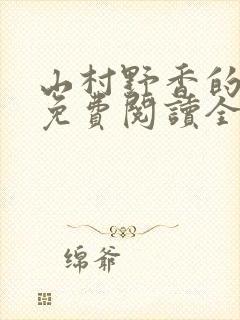 山村野香的
免費閱讀全
绵爷